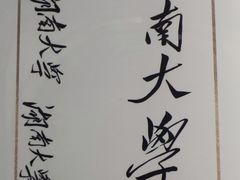 南大學
湖南大学 湖南大學